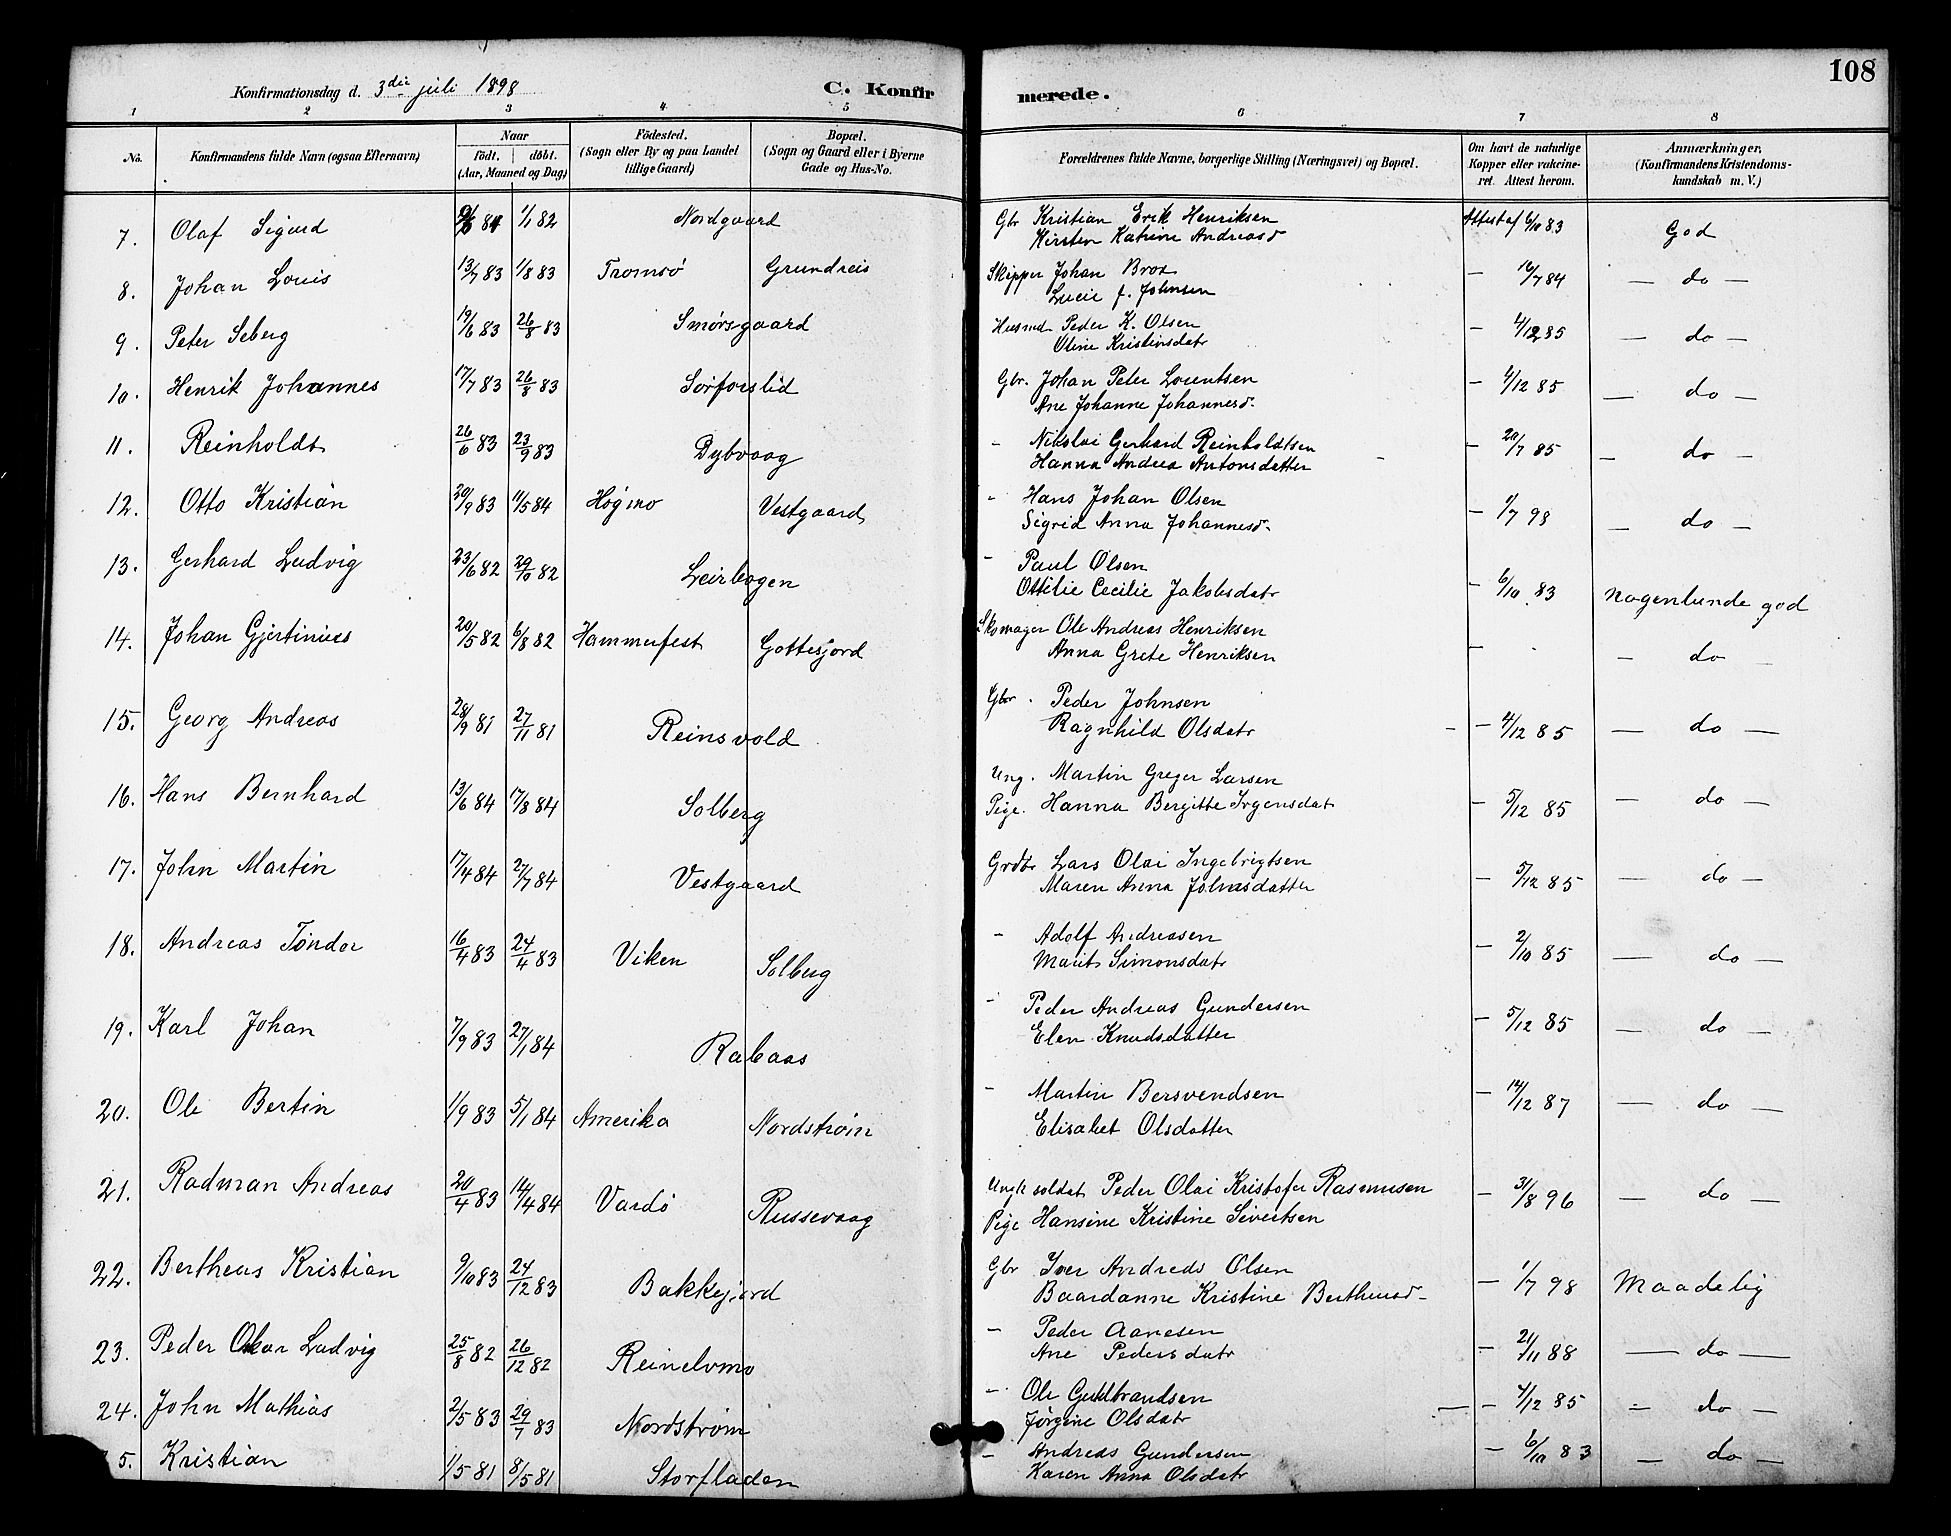 108
Konfirmationsdag d. 3die juli 1898 C. Konfirmerede.
1 2 3 4 5 6 7 8
No. Konfirmandens fulde Navn (ogsaa Efternavn) Naar födt. döbt. (Aar, Maaned og Dag) Födested. (Sogn eller By og paa Landet tillige Gaard) Bopæl. (Sogn og Gaard eller i Byerne Gade og Hus-No. Forældrenes fulde Navne, borgerlige Stilling (Næringsvei) og Bopæl. Om havt de naturlige Kopper eller vakcineret. Attest herom. Anmærkninger, (Konfirmandens Kristendomskundskab m. V.)
7. Olaf Sigurd 1/1 82 Nordgaard Gbr Kristian Erik Henriksen Attest af 6/10 83 God
Kirsten Katrine Andreasd
8. Johan Louis 13/7 83 1/8 83 Tromsø Grundreis Skipper Johan Brox — 16/7 84 — do —
Lucie J. Johnsen
9. Peter Seberg 19/6 83 26/8 83 Smørsgaard Husmd Peder K. Olsen — 4/12 85 — do —
Oline Kristinsdatr
10. Henrik Johannes 17/7 83 26/8 83 Sørforslid Gbr. Johan Peter Lorentsen — 4/12 85 — do —
Ane Johanne Johannesd.
11. Reinholdt 26/6 83 23/9 83 Dybvaag - Nikolai Gerhard Reinholdtsen — 20/7 85 — do —
Hanna Andrea Antonsdatter
12. Otto Kristian 20/9 83 11/5 84 Høgmo Vestgaard - Hans Johan Olsen — 1/7 98 — do —
Sigrid Anna Johannesd.
13. Gerhard Ludvig 23/6 82 29/10 82 Leirbogen - Paul Olsen
Ottilie Cecilie Jakobsdatr — 6/10 83 nogenlunde god
14. Johan Gjertinius 20/5 82 6/8 82 Hammerfest Gottesjord Skomager Ole Andreas Henriksen
Anna Grete Henriksen — — do —
15. Georg Andreas 28/9 81 27/11 81 Reinsvold Gbr. Peder Johnsen
Ragnhild Olsdatr — 4/12 85 — do —
16. Hans Bernhard 13/6 84 17/8 84 Solberg Ung. Martin Greger Larsen
Pige. Hanna Bergitte Irgensdat — 5/12 85 — do —
17. John Martin 17/4 84 27/7 84 Vestgaard Grdbr Lars Olai Ingebrigtsen
Maren Anna Johnsdatter — 5/12 85 — do —
18. Andreas Tønder 16/4 83 24/4 83 Viken Solberg - Adolf Andreasen
Marit Simonsdatr — 2/10 85 — do —
19. Karl Johan 7/9 83 27/1 84 Rabaas - Peder Andreas Gundersen
Elen Knudsdatter — 5/12 85 — do —
20. Ole Bertin 1/9 83 5/1 84 Amerika Nordstrøm - Martin Bersvendsen
Elisabet Olsdatter — 14/12 87 — do —
21. Radman Andreas 20/4 83 14/4 84 Vardø Russevaag Ungk soldat Peder Olai Kristofer Rasmusen
Pige Hansine Kristine Sivertsen — 31/8 96 — do —
22. Bertheus Kristian 9/10 83 24/12 83 Bakkejord Gbr Iver Andreas Olsen
Baardanne Kristine Bertheusd. — 1/7 98 Maadelig
23. Peder Oskar Ludvig 25/8 82 26/12 82 Reinelvmo - Peder Aanesen
Ane Pedersdatr — 21/11 88 — do —
24. John Mathias 2/5 83 29/7 83 Nordstrøm - Ole Guldbrandsen
Jørgine Olsdatr — 4/12 85 — do —
5. Kristian 1/5 81 8/5 81 Storfladen - Andreas Gundersen
Karen Anna Olsdatr — 6/10 83 — do —